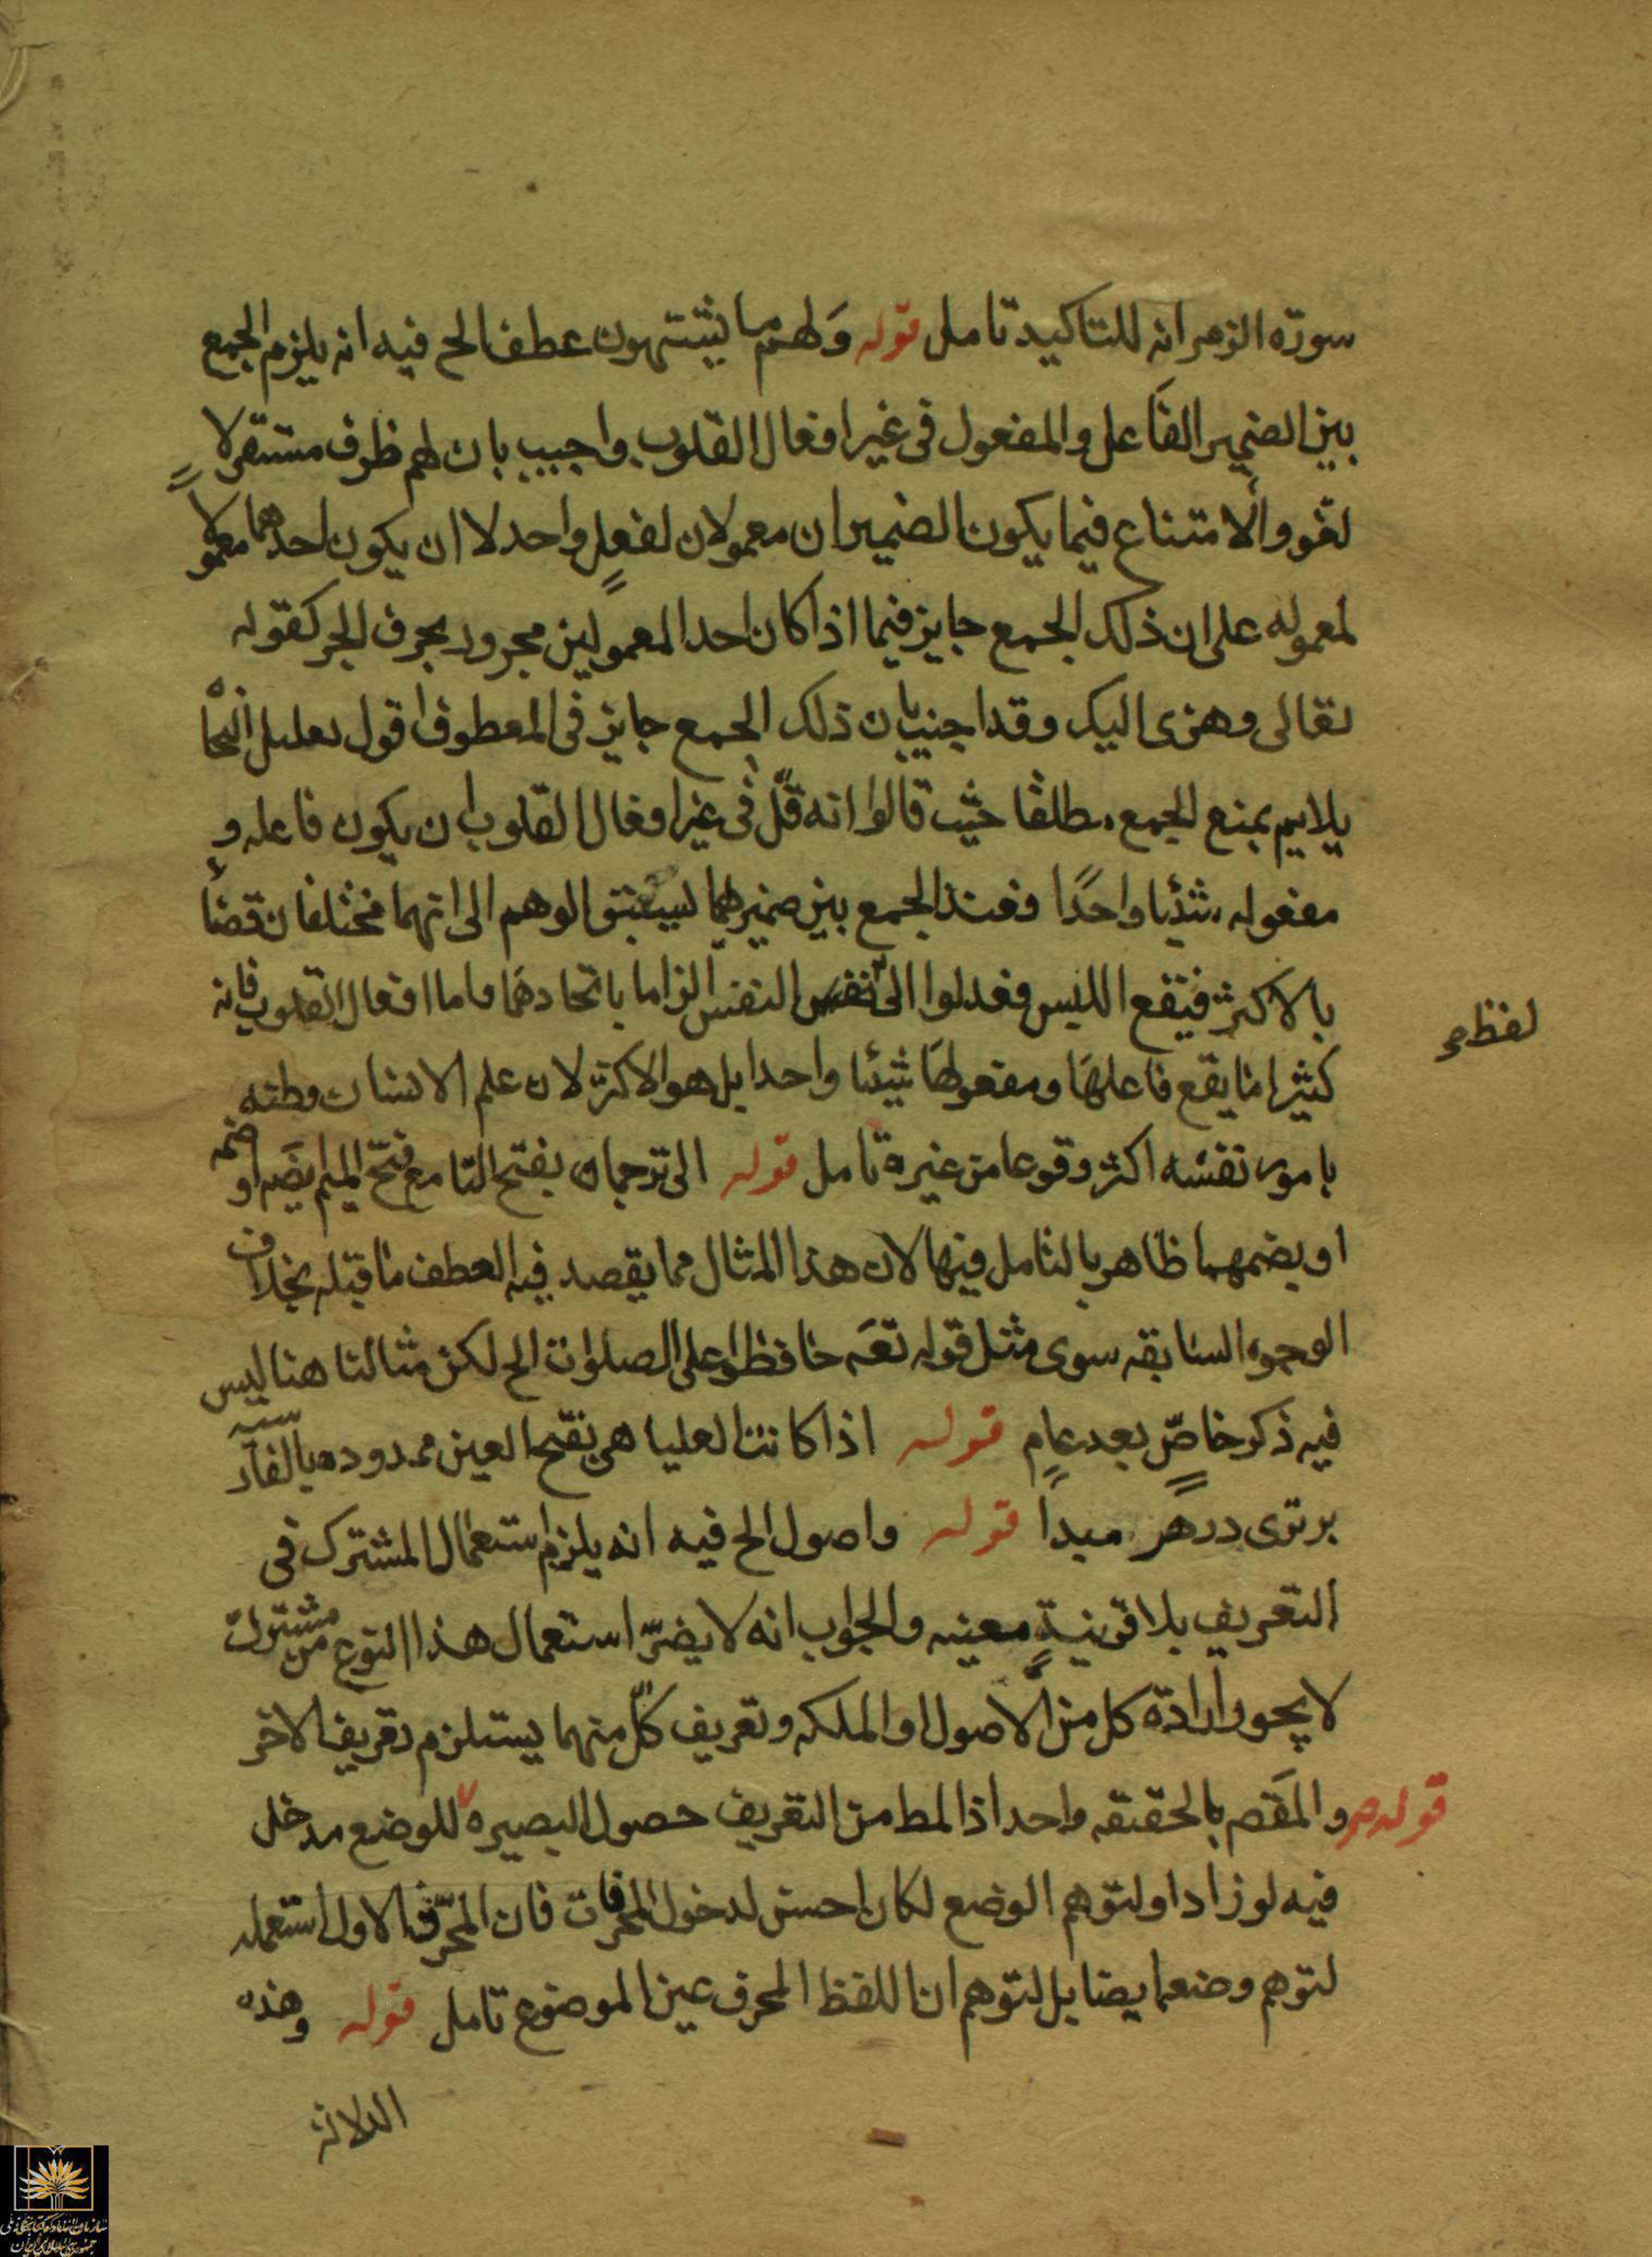 سورة الزمر انه للتاكيد تامل قوله وَلهم ما يشتهون عطف الخ فيه انه يلزم الجمع
بين الضمير الفاعل والمفعول في غير افعال القلوب واجيب بان لهم ظرف مستقر لا
لغو والامتناع فيما يكون الضميران معمولان لفعلٍ واحد لا ان يكون احدهما معمولاً
لمعموله على ان ذلك الجمع جايز فيما اذا كان احد المعمولين مجرور بحرف الجر كقوله
تعالى وهزى اليك وقد اجيب بان ذلك الجمع جايز في المعطوف اقول تعليل النحاة
يلايم بمنع الجمع مطلقا حيث قالوا انه قلّ في غير افعال القلوب ان يكون فاعله و
مفعوله شيئا واحدًا فعند الجمع بين ضميرهما ليسبق الوهم الى انهما مختلفان قضاءً
بالاكثر فيقع اللبس فعدلوا الى نفس النفس الزاما باتحادهما واما افعال القلوب فانه
لفظ صح
كثيرا ما يقع فاعلها ومفعولها شيئا واحدا بل هو الاكثر لان علم الانسان وظنه
بامور نفسه اكثر وقوعا من غيره تامل قوله الى ترجمان بفتح التا مع فتح الميم او ضمه
او بضمهما ظاهر بالتامل فيها لان هذا المثال مما يقصد فيه العطف ما قبله بخلاف
الوجوه السابقه سوى مثل قوله تعه حافظوا على الصلوات الخ لكن مثالنا هنا ليس
فيه ذكر خاصٍّ بعد عامٍ قوله اذا كانت العليا هي بفتح العين ممدوده بالفارسيه
برترى در هر مبدأ قوله واصول الخ فيه انه يلزم استعمال المشترك في
التعريف بلا قرينةٍ معينه والجواب انه لا يضرّ استعمال هذا النوع من مشترك
لا يجوز ارادة كل من الاصول او الملكه وتعريف كلّ منهما يستلزم تعريف الاخر
والمقصم بالحقيقه واحد اذ المط من التعريف حصول البصيره قوله صح للوضع مدخل
فيه لو زاد او لتوهم الوضع لكان احسن لدخول المحرفات فان المحرّف الاول استعمله
لتوهم وضعه ايضا بل لتوهم ان اللفظ المحرف عين الموضوع تامل قوله وهذه
الدلالة